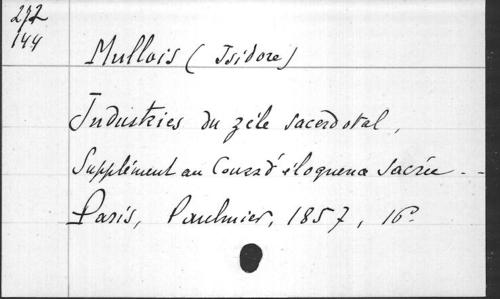 272
144
Mullois (Isidore)
Industries du zèle sacerdotal,
Supplément au Cours d'éloquence sacrée...
Paris, Paulmier, 1857, 16°.